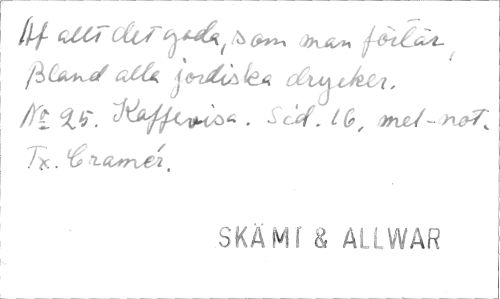 Af allt det goda, som man förtär,
Bland alla jordiska drycker.
No 25. Kaffevisa. Sid. 16, mel-not.
Tx. Cramér.
SKÄMT & ALLWAR